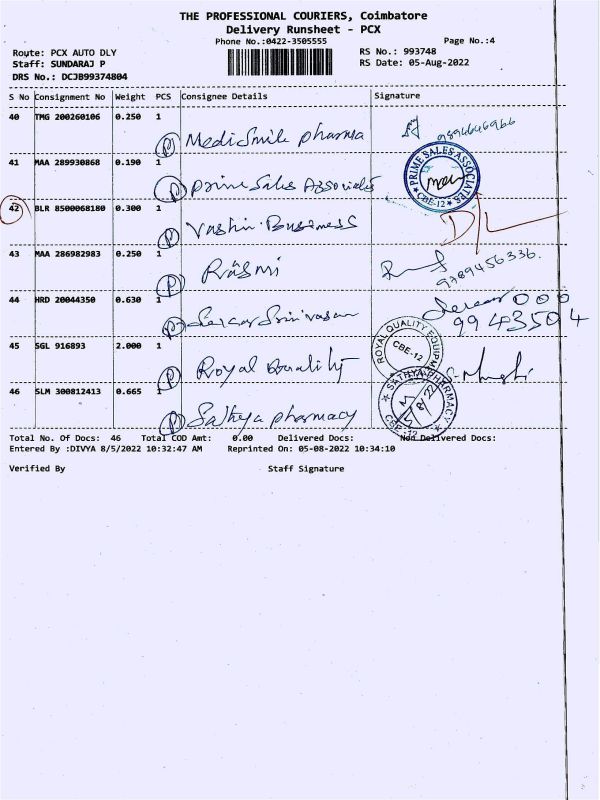 THE PROFESSIONAL COURIERS, Coimbatore
Delivery Runsheet - PCX
Phone No.:0422-3505555
Page No.:4
Route: PCX AUTO DLY
RS No.: 993748
Staff: SUNDARAJ P
RS Date: 05-Aug-2022
DRS No.: DCJB99374804
S No Consignment No Weight PCS Consignee Details Signature
40 TMG 200260106 0.250 1
P Medi Smile pharma
9894646966
41 MAA 289930868 0.190 1
P Prime Sales Associates
PRIME SALES ASSOCIATES
CBE-12
42 BLR 8500068180 0.300 1
P Vashin Business
D/L
43 MAA 286982983 0.250 1
P Rasmi
9789456336.
44 HRD 20044350 0.630 1
P Srinivasan
45 SGL 916893 2.000 1
P Royal Quality
ROYAL QUALITY EQUIPM
CBE-12
46 SLM 300812413 0.665 1
P Sathya pharmacy
SATHYA PHARMACY
CBE-12
Total No. Of Docs: 46 Total COD Amt: 0.00 Delivered Docs: Non Delivered Docs:
Entered By :DIVYA 8/5/2022 10:32:47 AM Reprinted On: 05-08-2022 10:34:10
Verified By Staff Signature